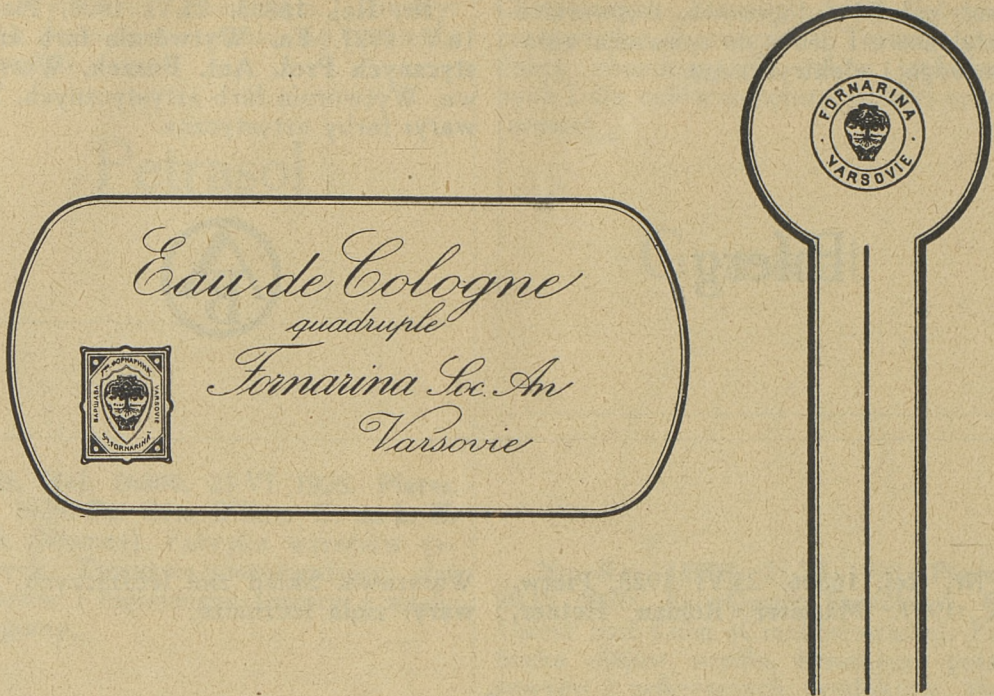 Eau de Cologne
quadruple
Fornarina Soc. An
Varsovie
ВАРШАВА
VARSOVIE
FORNARINA
FORNARINA
VARSOVIE